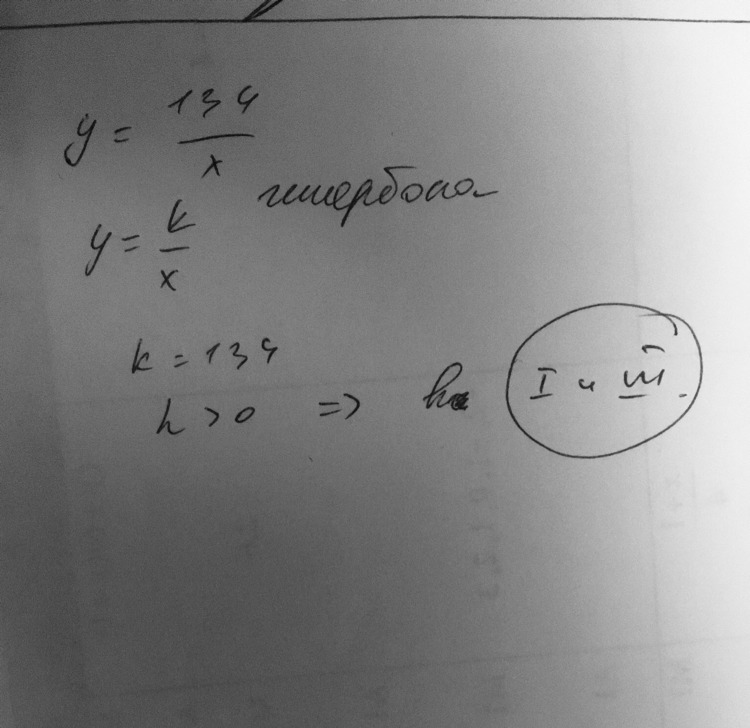 y = 134/x
гипербола
y = k/x
k = 134
k > 0 => в I и III.